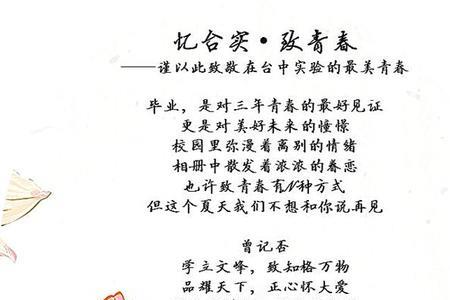 忆台实·致青春
——谨以此致敬在台中实验的最美青春
毕业，是对三年青春的最好见证
更是对美好未来的憧憬
校园里弥漫着离别的情绪
相册中散发着浓浓的眷恋
也许致青春有N种方式
但这个夏天我们不想和你说再见
曾记否
学立文峰，致知格万物
品耀天下，正心怀大爱